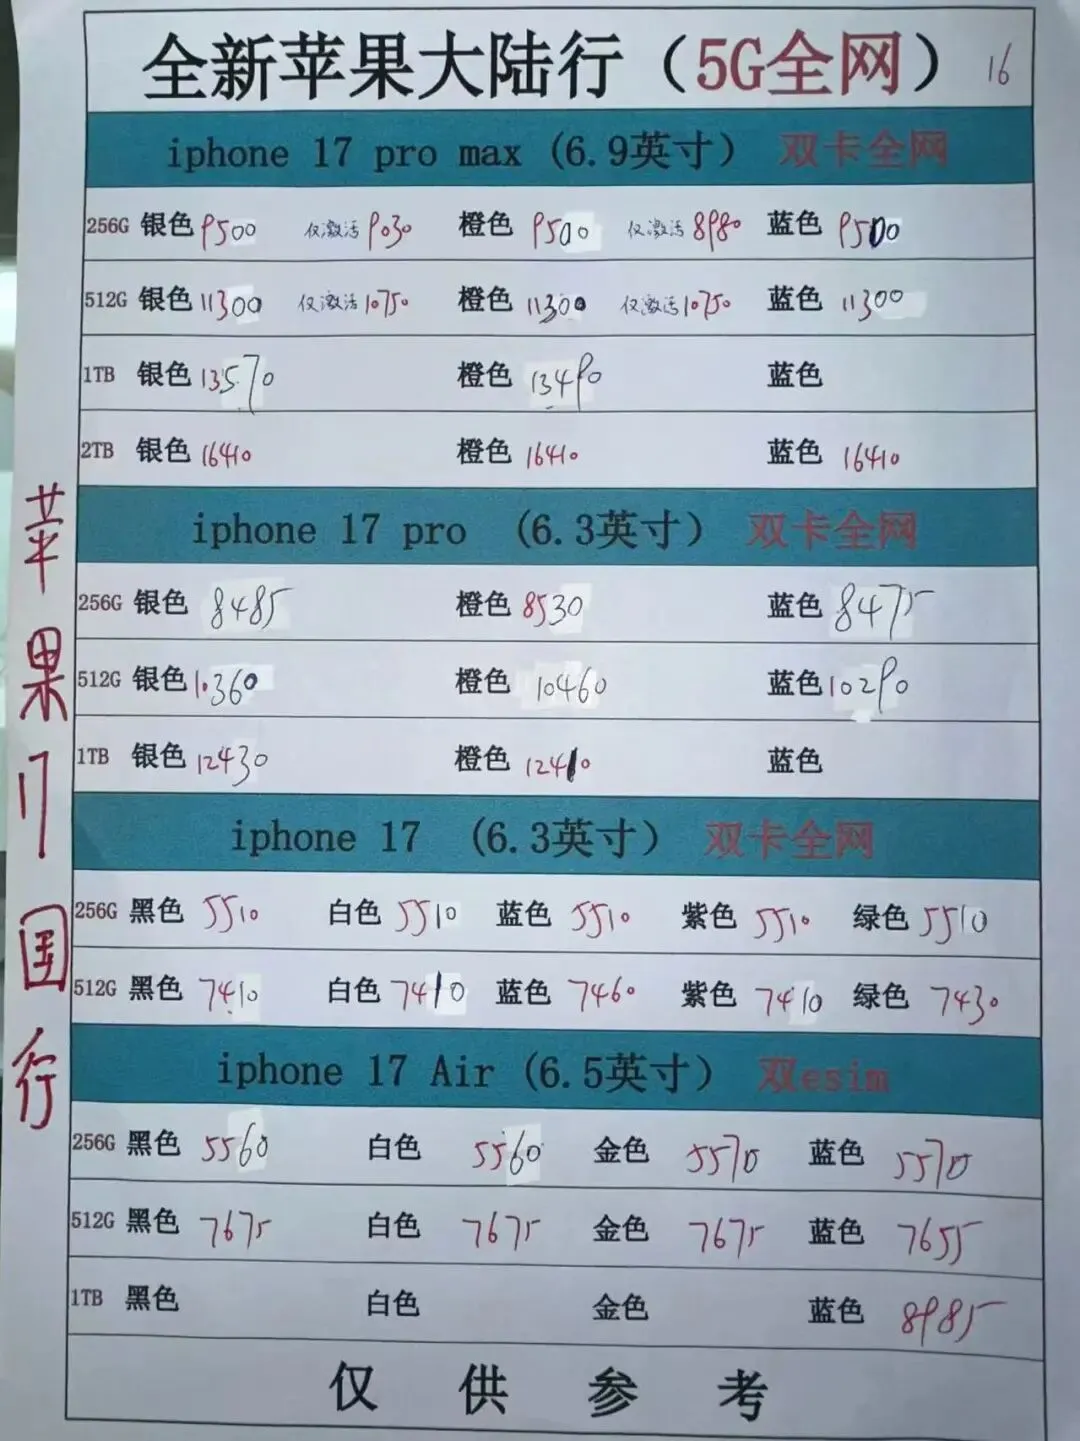 全新苹果大陆行（5G全网） 16
iphone 17 pro max (6.9英寸） 双卡全网
256G 银色 9500 仅激活 9030 橙色 9500 仅激活 8980 蓝色 9500
512G 银色 11300 仅激活 10750 橙色 11300 仅激活 10750 蓝色 11300
1TB 银色 13570 橙色 13490 蓝色
2TB 银色 16410 橙色 16410 蓝色 16410
iphone 17 pro (6.3英寸） 双卡全网
256G 银色 8485 橙色 8530 蓝色 8475
512G 银色 10360 橙色 10460 蓝色 10290
1TB 银色 12430 橙色 12410 蓝色
iphone 17 (6.3英寸） 双卡全网
256G 黑色 5510 白色 5510 蓝色 5510 紫色 5510 绿色 5510
512G 黑色 7410 白色 7410 蓝色 7460 紫色 7410 绿色 7430
iphone 17 Air (6.5英寸） 双esim
256G 黑色 5560 白色 5560 金色 5570 蓝色 5570
512G 黑色 7675 白色 7675 金色 7675 蓝色 7655
1TB 黑色 白色 金色 蓝色 8985
仅供参考
苹果17国行